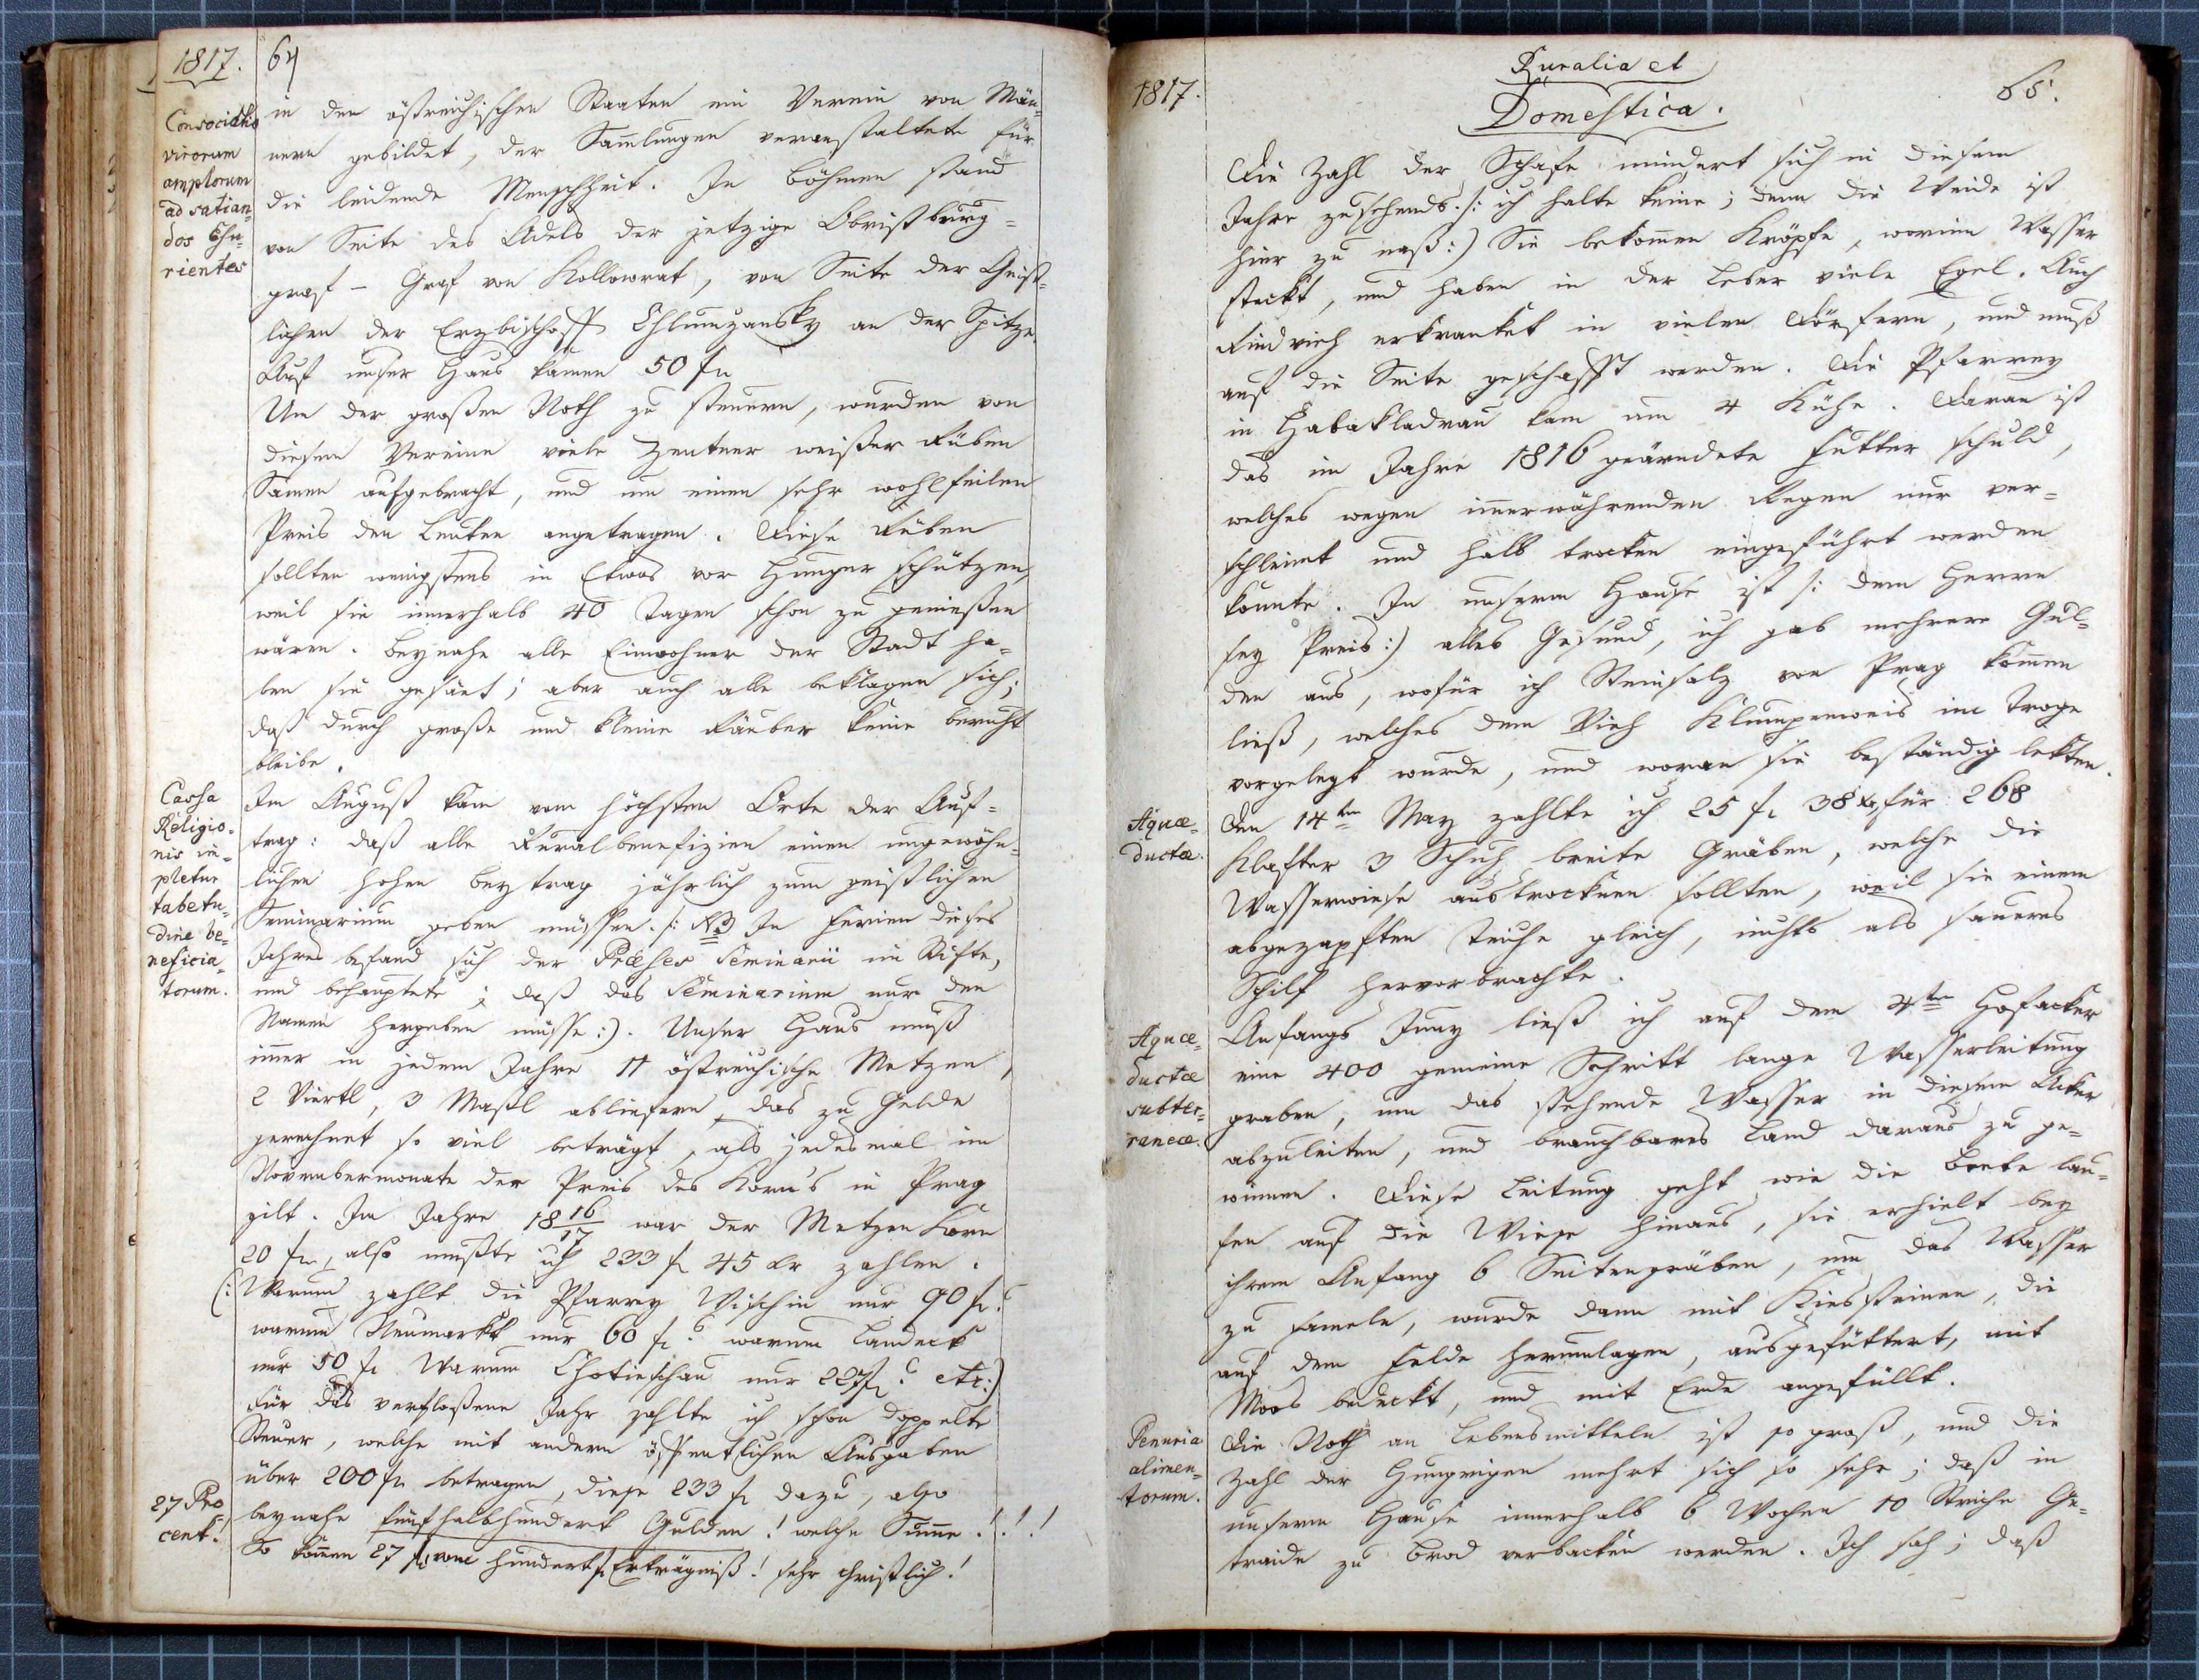 1817.
64
Consociatio
virorum
amplorum
ad satian-
dos Esu-
rientes
in den östreichischen Staaten ein Verein von Män-
nern gebildet, der Sammlungen veranstaltete für
die leidende Menschheit. In Böhmen stand
von Seite des Adels der jetzige Obristburg-
graf – Graf von Kollowrat, von Seite der Geist-
lichen der Erzbischoff Chlumzansky an der Spitze.
Auf unser Haus kamen 50 fl
Um der großen Noth zu steuern, wurden von
diesem Vereine viele Zentner weißer Rüben
Samen aufgebracht, und um einen sehr wohlfeilen
Preis den Leuten angetragen. Diese Rüben
sollten wenigstens in Etwas vor Hunger schützen,
weil sie innerhalb 40 Tagen schon zu genießen
wären. Beynahe alle Einwohner der Stadt ha-
ben sie gesäet; aber auch alle beklagen sich;
daß durch große und kleine Räuber keine
bleibe.
Cassa
Religio-
nis im-
pletur
tabetu-
dine be-
neficia-
torum.
Im August kam vom höchsten Orte der Auf-
trag: daß alle Ruralbenefizien einen ungewöhn-
lichen hohen Beytrag jährlich zum geistlichen
Seminarium geben müssen. /: NB In Ferien dieses
Jahres befand sich der Præses Seminarii im Stifte,
und behauptete; daß das Seminarium nur den
Namen hergeben müsse :). Unser Haus muß
immer in jedem Jahre 11 östreichische Metzen,
2 Viertl, 3 Maßl abliefern, das zu Gelde
gerechnet so viel beträgt, als jedesmal im
Novembermonate der Preis des Korns in Prag
gilt. Im Jahre 18 16/17 war der Metzen Korn
20 fl, also mußte ich 233 fl 45 kr zahlen.
(: Warum zahlt die Pfarrey Wischin nur 90 fl?
warum Neumarkt nur 60 fl? warum Landeck
nur 50 fl Warum Chotieschau nur 227 fl? etc:)
Für das verflossene Jahr zahlte ich schon doppelte
Steuer, welche mit andern öffentlichen Ausgaben
über 200 fl betragen, diese 233 fl dazu, also
27 Pro
cent!
beynahe fünfhalbhundert Gulden! welche Summe!!!
So kommen 27 fl vom hundert fl Erträgniß! sehr christlich!
1817.
Ruralia et
Domestica.
65.
Die Zahl der Schafe mindert sich in diesem
Jahre zusehends. /: ich halte keine; denn die Weide ist
hier zu naß :) Sie bekommen Kröpfe, worinn Wasser
steckt, und haben in der Leber viele Egel. Auch
Rindvieh erkranket in vielen Dörfern, und muß
auf die Seite geschafft werden. Die Pfarrey
in Habakladrau kam um 4 Kühe. Daran ist
das im Jahre 1816 geärndete Futter schuld,
welches wegen immerwährenden Regen nur ver-
schleimt und halb trocken eingeführt werden
konnte. In unserm Hause ist /: dem Herrn
sey Preis :) alles Gesund, ich gab mehrere Gul-
den aus, wofür ich Steinsalz von Prag kommen
ließ, welches dem Vieh Klumpenweis im Troge
vorgelegt wurde, und woran sie beständig lekten.
Aquæ-
ductæ.
Den 14ten May zahlte ich 25 fl 38 kr, für 268
Klafter 3 Schuh breite Gräben, welche die
Wasserwiese austrocknen sollten, weil sie einem
abgezapften Teiche gleich, nichts als saueres
Schilf hervorbrachte.
Aquæ-
ductæ
subter-
raneæ.
Anfangs Juny ließ ich auf dem 4ten Hofacker
eine 400 gemeine Schritt lange Wasserleitung
graben, um das stehende Wasser in diesem Acker
abzuleiten, und brauchbares Land daraus zu ge-
winnen. Diese Leitung geht wie die Beete lau-
fen auf die Wiese hinaus, sie erhielt bey
ihrem Anfang 6 Seitengräben, um das Wasser
zu sameln, wurde dann mit Kiessteinen, die
auf dem Felde herumlagen, ausgefüttert, mit
Moos bedeckt, und mit Erde angefüllt.
Penuria
alimen-
torum.
Die Noth an Lebensmitteln ist so groß, und die
Zahl der Hungrigen mehrt sich so sehr; daß in
unserm Hause innerhalb 6 Wochen 10 Striche Ge-
traide zu Brod verbacken werden. Ich sah; daß